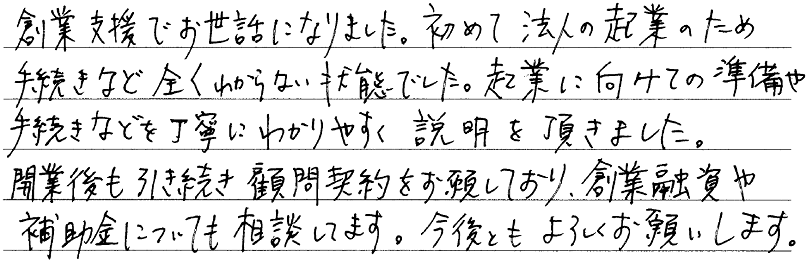 創業支援でお世話になりました。初めて法人の起業のため
手続きなど全くわからない状態でした。起業に向けての準備や
手続きなどを丁寧にわかりやすく説明を頂きました。
開業後も引き続き顧問契約をお願しており、創業融資や
補助金についても相談してます。今後ともよろしくお願いします。